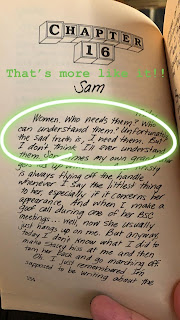 CHAPTER
16
That's more like it!!
Sam
Women. Who needs them? Who
can understand them? Unfortunately
the sad truth is, I need them. But
I don't think I'll ever understand
them. Sometimes my own
is always flying off the handle
whenever I say the littlest thing
to her, especially if it concerns her
appearance. And when I make a
goof call during one of her BSC
meetings... well, now she usually
just hangs up on me. But anyway,
today I don't know what I did to
make Stacey hiss at me and then
turn her back and go marching off.
Oh. I just remembered I'm
supposed to be writing about the